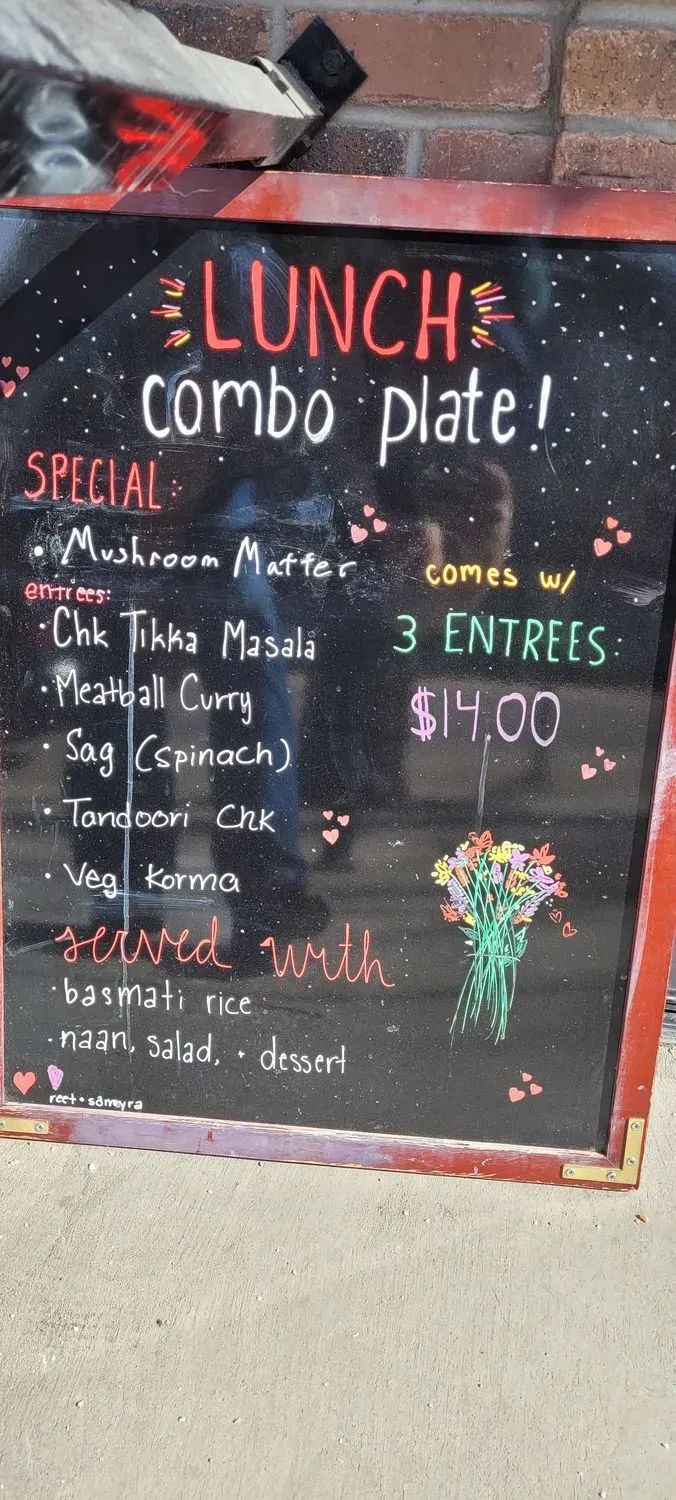 LUNCH
combo plate!
SPECIAL:
• Mushroom Matter
entrees:
• Chk Tikka Masala
• Meatball Curry
• Sag (spinach)
• Tandoori Chk
• Veg Korma
comes w/
3 ENTREES:
$14.00
served with
• basmati rice
• naan, salad, + dessert
reet + sameyra